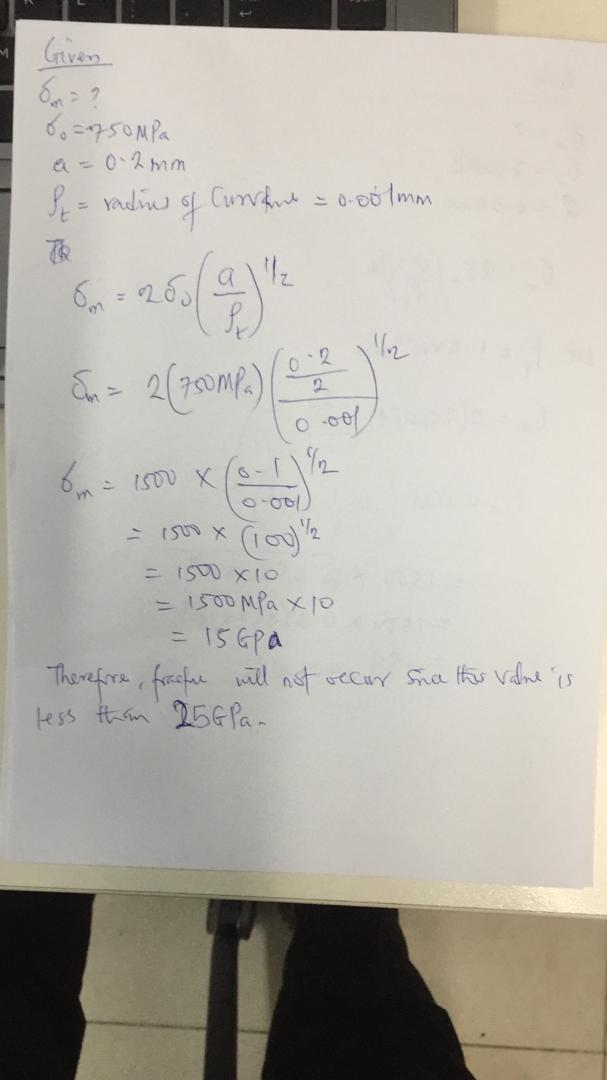 Given
σm = ?
σ0 = 750MPa
a = 0.2mm
ρt = radius of Curvature = 0.001mm
σm = 2σ0 (a/ρt)^1/2
σm = 2(750MPa) ((0.2/2)/0.001)^1/2
σm = 1500 × (0.1/0.001)^1/2
= 1500 × (100)^1/2
= 1500 × 10
= 1500MPa × 10
= 15GPa
Therefore, fracture will not occur since this value is
less than 25GPa.